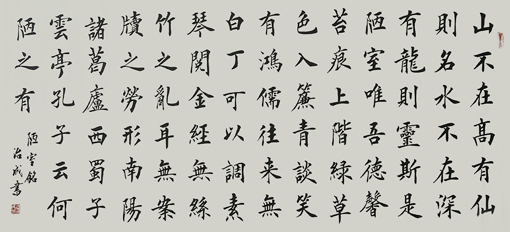 山不在高有仙
則名水不在深
有龍則靈斯是
陋室唯吾德馨
苔痕上階綠草
色入簾青談笑
有鴻儒往來無
白丁可以調素
琴閱金經無絲
竹之亂耳無案
牘之勞形南陽
諸葛廬西蜀子
雲亭孔子云何
陋之有
陋室銘
治成書